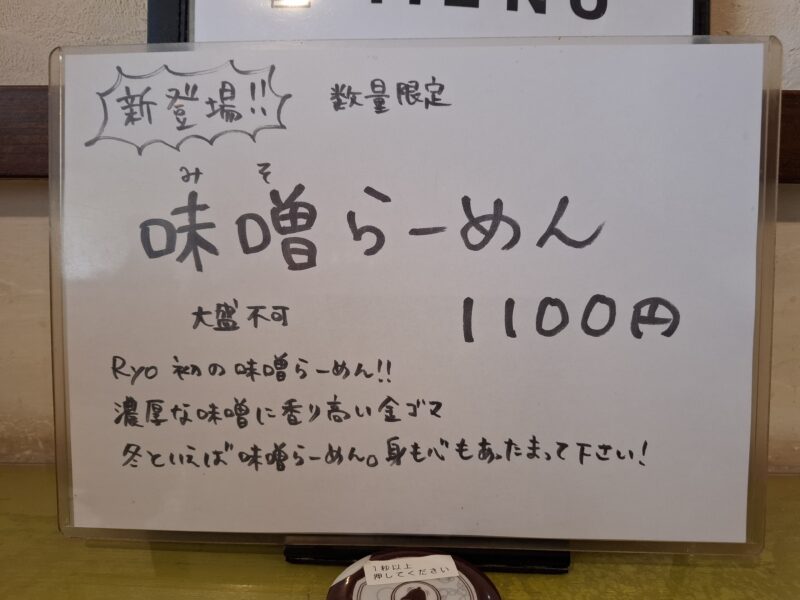 MENU
新登場!!
数量限定
みそ
味噌らーめん
大盛不可
1100円
Ryo 初の味噌らーめん!!
濃厚な味噌に香り高い金ゴマ
冬といえば味噌らーめん。身も心もあったまって下さい!
1秒以上
押してください